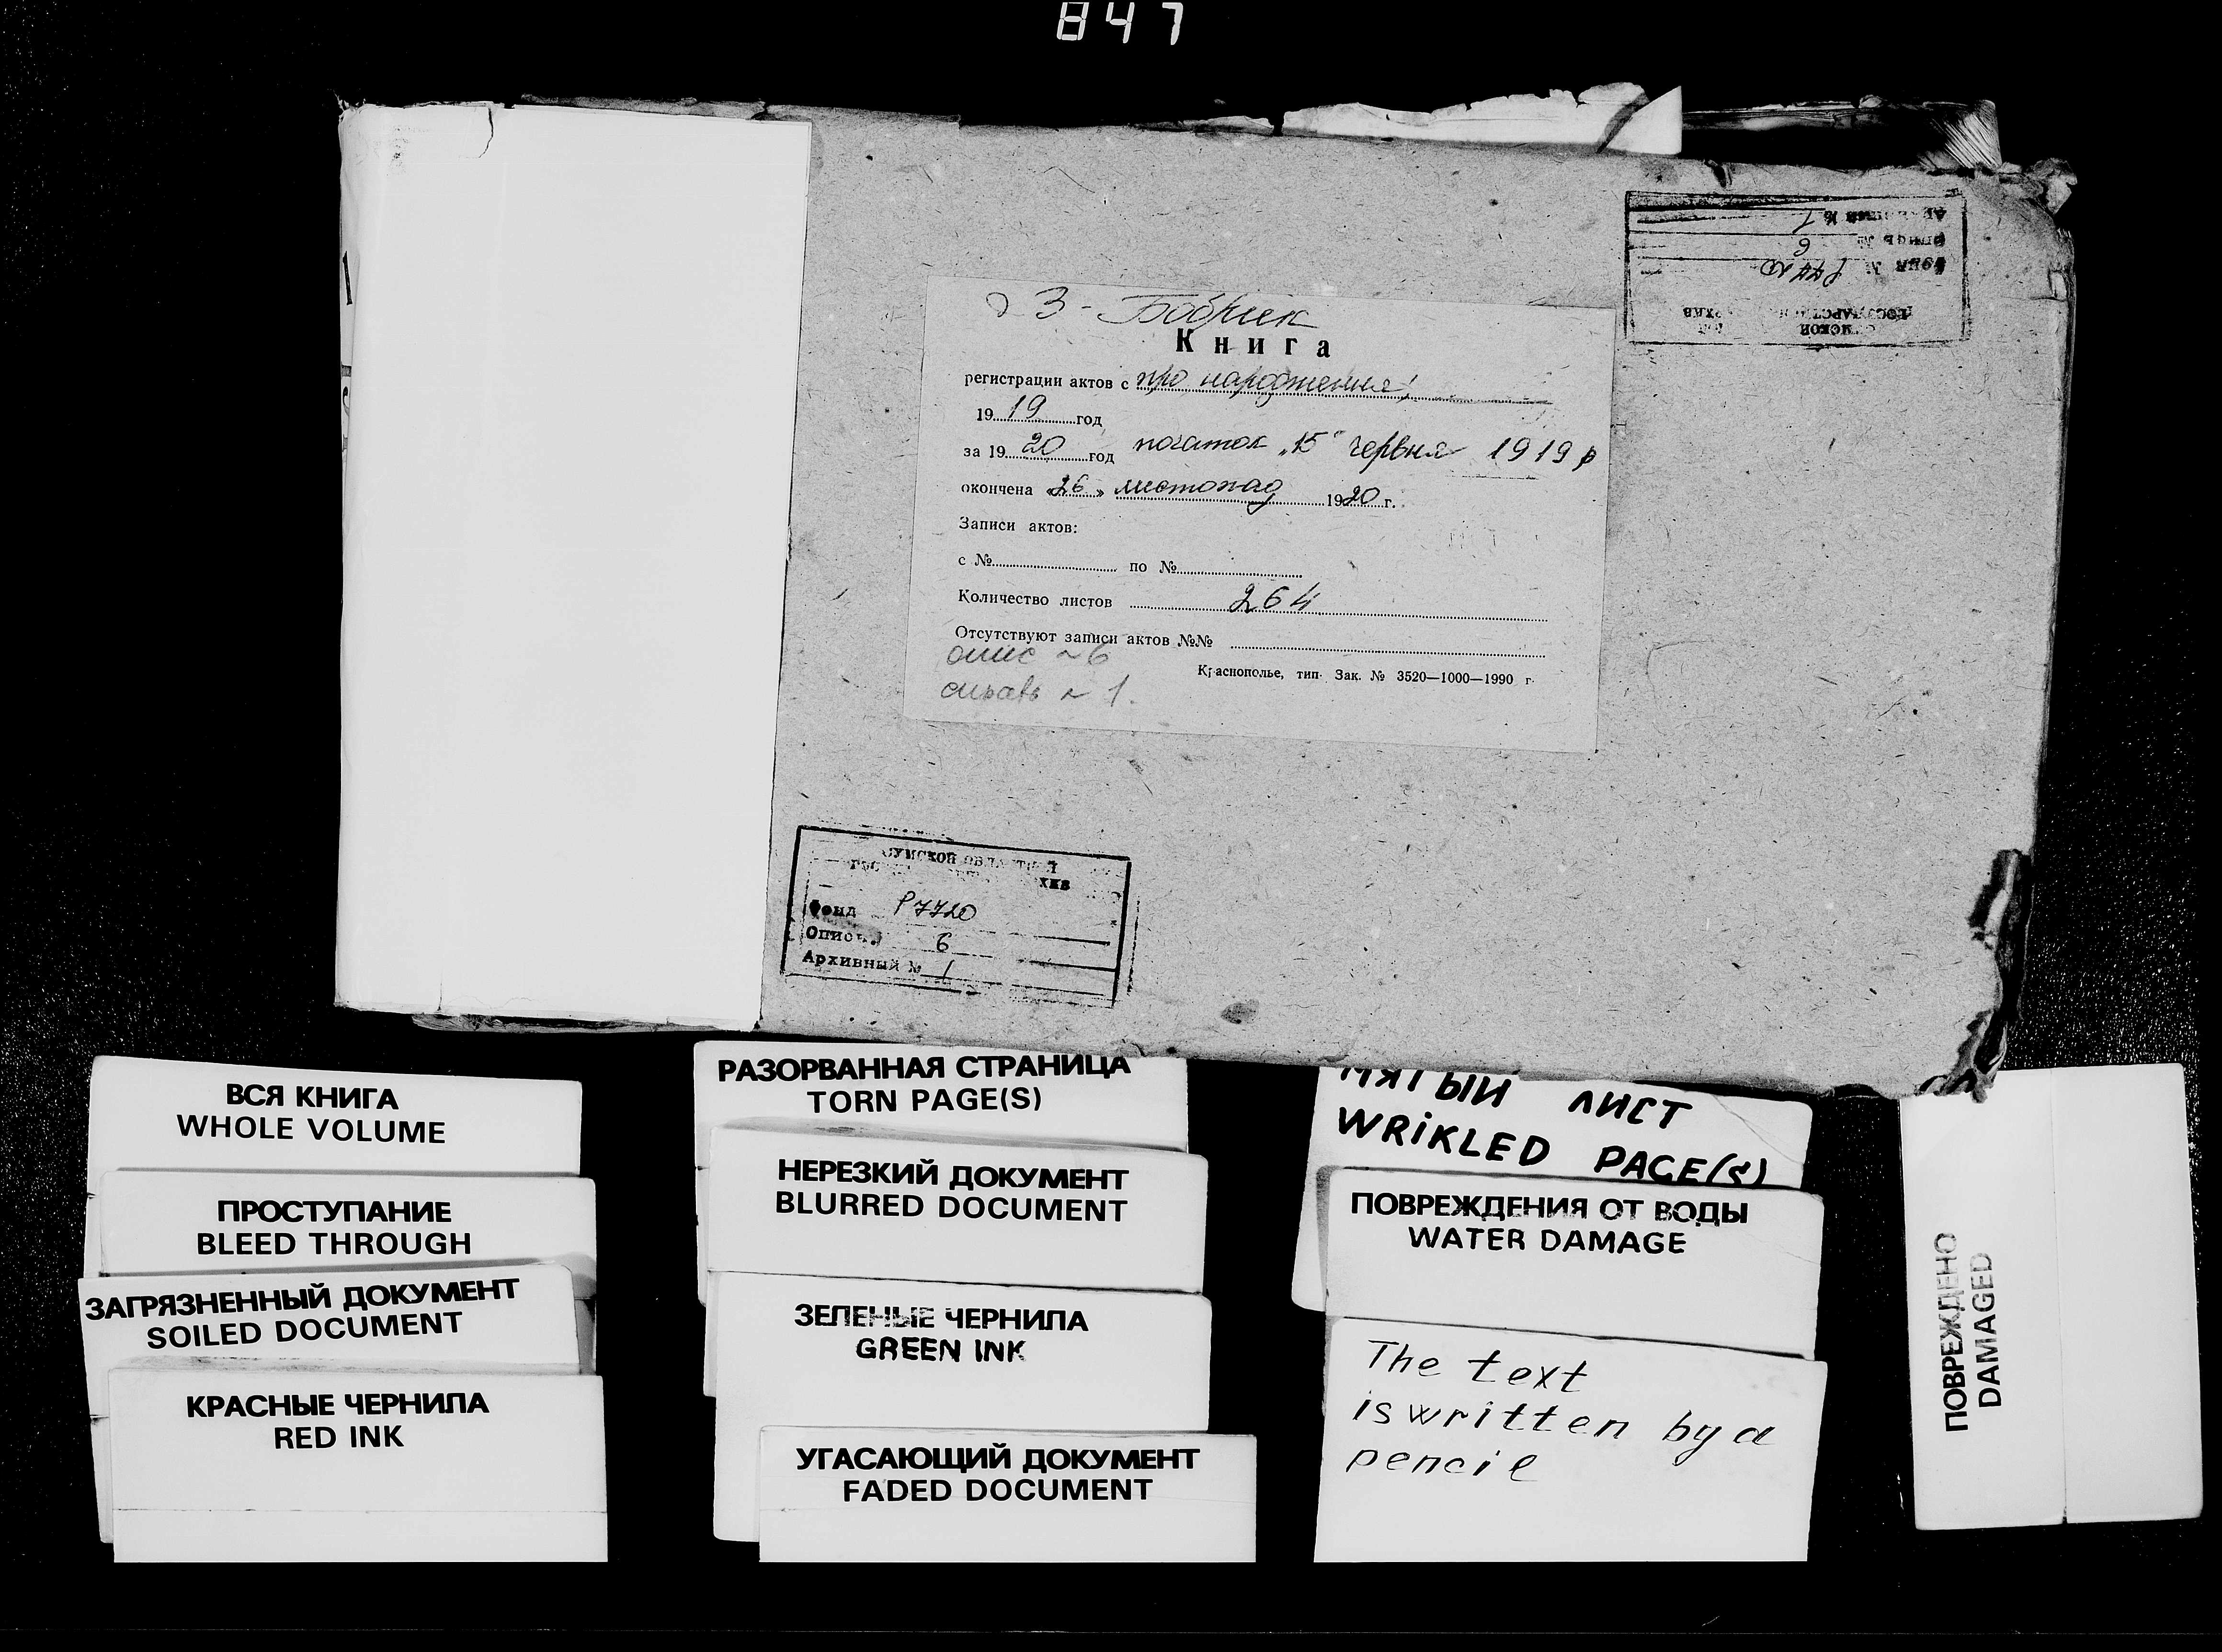 847
З - Бобрик
Книга
регистрации актов с про народження
19 19 год
за 19 20 год початок „15" червня 1919 р
окончена «26» листопад 1920 г.
Записи актов:
с № по №
Количество листов 264
Отсутствуют записи актов №№
опис № 6
Краснополье, тип. Зак. № 3520—1000—1990 г.
справ № 1.
СУМСКОЙ
Фонд Р7720
Опись 6
Архивный № 1
ВСЯ КНИГА
WHOLE VOLUME
ПРОСТУПАНИЕ
BLEED THROUGH
ЗАГРЯЗНЕННЫЙ ДОКУМЕНТ
SOILED DOCUMENT
КРАСНЫЕ ЧЕРНИЛА
RED INK
РАЗОРВАННАЯ СТРАНИЦА
TORN PAGE(S)
НЕРЕЗКИЙ ДОКУМЕНТ
BLURRED DOCUMENT
ЗЕЛЕНЫЕ ЧЕРНИЛА
GREEN INK
УГАСАЮЩИЙ ДОКУМЕНТ
FADED DOCUMENT
МЯТЫЙ ЛИСТ
WRiKLED PAGE(S)
ПОВРЕЖДЕНИЯ ОТ ВОДЫ
WATER DAMAGE
The text
is written by a
pencil
ПОВРЕЖДЕНО
DAMAGED